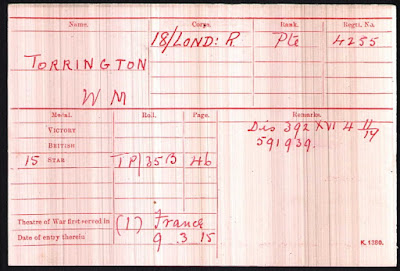 Name. Corps. Rank. Regtl. No.
TORRINGTON 18/LOND: R. Pte 4255
W M
Medal. Roll. Page. Remarks.
VICTORY Dis 392 XVI 4/11/17
BRITISH 591939.
15 STAR TP/35B 46
Theatre of War first served in (1) France
Date of entry therein 9 3 15
K. 1380.